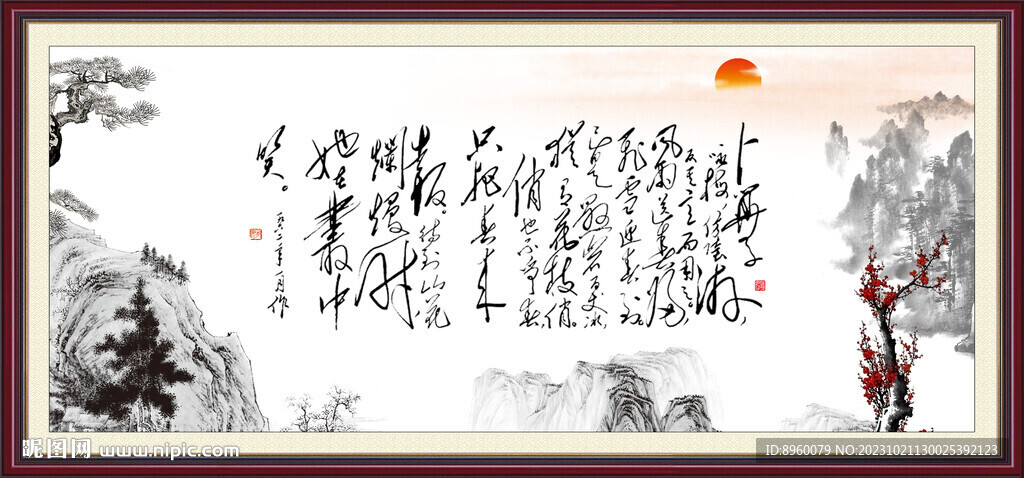 卜算子
咏梅,依陸游,
反其意而用之。
風雨送春歸,
飛雪迎春到。
已是懸崖百丈冰,
猶有花枝俏。
俏也不争春,
只把春来
報。待到山花
爛熳時,
她在叢中
笑。
一九六二年一月作
昵图网 www.nipic.com
ID:8960079 NO:20231021130025392123